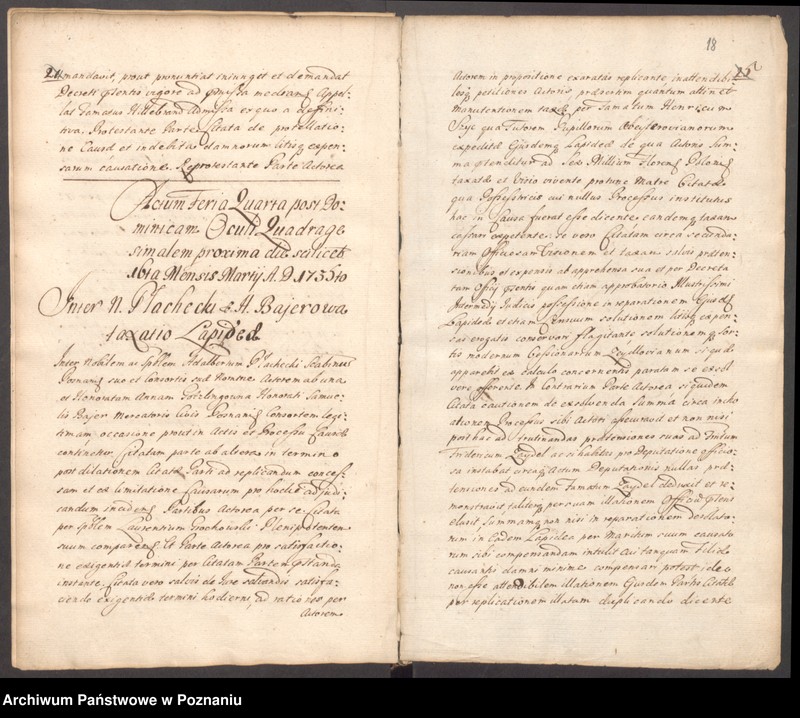 24
mandavit, prout pronuntiat iniungit et demandat
Decreti vigore ad mediam Appel-
lat famatus Hillebrand Admissa ex quo a deffini-
tiva. Protestante Parte Citata de protellatio-
ne Causæ et indebita damnorum litisq expen-
sarum causatione. Reprotestante Parte Actorea
Actum Feria Quarta post Do-
minicam Oculi Quadrage
simalem proxima die scilicet
Mensis Martij A. D. 17
Inter N. Płachecki & H. Bajerowa
taxatio Lapideæ
Inter Nobilem ac Spblem Adalbertum Płachecki Scabinu
Posnan suo et Consortis suæ Nomine Actorem ab una
et Honoratam Annam Honorati Samue-
lis Bajer Mercatoris Civis Posnani Consortem legi
timam occasione prout in Actis et Processu Causæ
continetur Citatam parte ab altera in termino
post dilationem Citatæ Parti ad replicandum conces-
sam et ex limitatione Causarum pro hodie ad judi-
candum inciden Partibus Actorea per se Citata
per Spblem Laurentium Grochowski Plenipotentem
suum comparen Et Parte Actorea pro satisfactio-
ne exigentiæ termini per Citatam Partem
instante, Citata vero salvis de Jure salvandis satisfa-
ciendo exigentiæ termini hodierni, ad rationes per
Actorem
18
25
Actorem in propositione exaratas replicante, inattendibi-
les petitiones Actoris præsertim quantum attinet
manutentionem taxæ per famatum Henricum
qua Tutorem Pupillorum
expeditæ Lapideæ de qua Actore sum-
ma ad Sex Millium Floren Polon
taxatæ et Viro vivente protunc Matre Citatæ
qua Possessricis cui nullus Processus institutus
hac in Causa fuerat esse dicente eandemq taxam
cassari expetente, se vero Citatam circa secunda-
riam Officiosam Visionem et taxam salvis præten-
sionibus et expensis ab apprehensa sua et per Decreta
tam Officij quam etiam approbatorio Illustrissimi
Intermedij Judicij possessione in reparationem
Lapideæ et etiam Censuum solutionem litisq expen-
sas erogatis conservari flagitante solutionem sor-
tis modernum Cessionarium siquid
apparebit ex Calculo concernentis paratam se exsol
vere offerente. In Contrarium Parte Actorea siquidem
Citata cautionem de exsolvenda Summa circa incho
ationem Processus sibi Actori assecuravit et non nisi
posthac ad trutinandas prætensiones suas ad famatum
Fridericum Zaydel ac si habitas pro Deputatione officio
sa instabat circaq Actum Deputationis nullas præ-
tensiones ad eundem famatum Zaydel deduxit et re-
monstravit, taliterq per suam illationem Officium
elusit summamq non nisi in reparationem desolato-
rum in eadem Lapidea per Maritum suum causato
rum sibi compensandam intulit cui tanquam
causanti damni minime compensari potest ideo
non esse attendibilem illationem Partis Citatæ
per replicationem illatam duplicando dicente
Archiwum Państwowe w Poznaniu